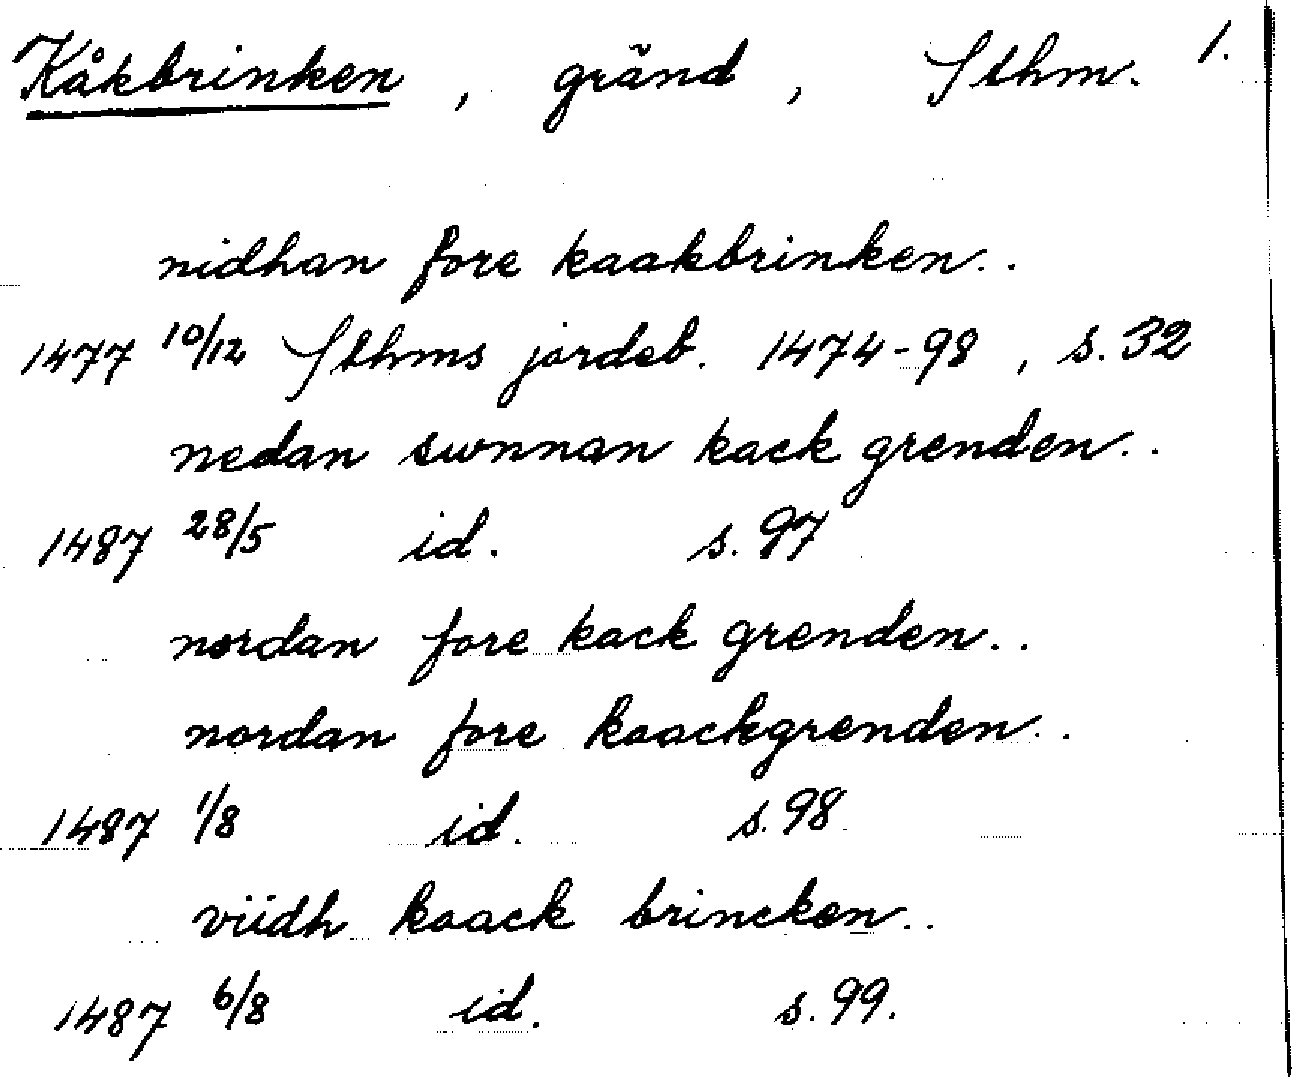 Kåkbrinken, gränd, Sthm. 1.
nidhan fore kaakbrinken..
1477 10/12 Sthms jordeb. 1474-98, s. 32
nedan swnnan kack grenden..
1487 28/5 id. s. 97
nordan fore kack grenden..
nordan fore kaackgrenden..
1487 1/8 id. s. 98
viidh kaack brincken..
1487 6/8 id. s. 99.